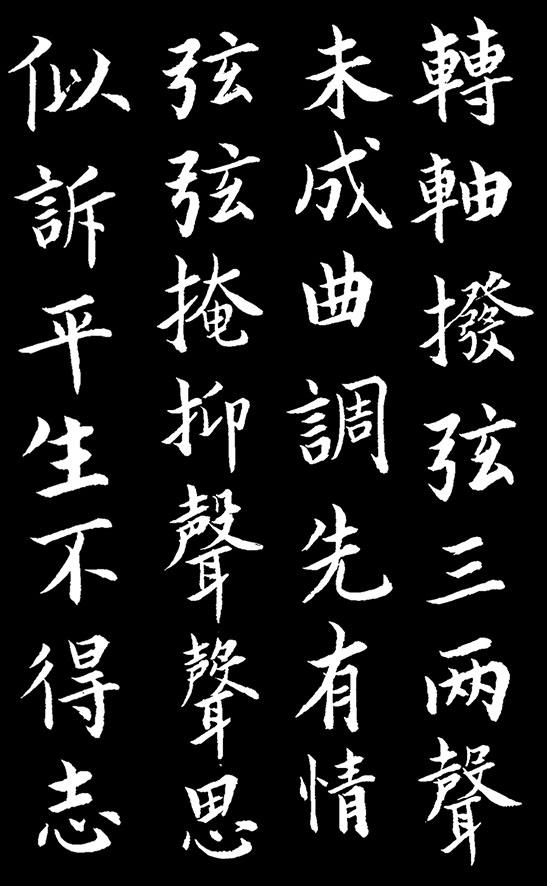 轉軸撥弦三两聲
未成曲調先有情
弦弦掩抑聲聲思
似訴平生不得志